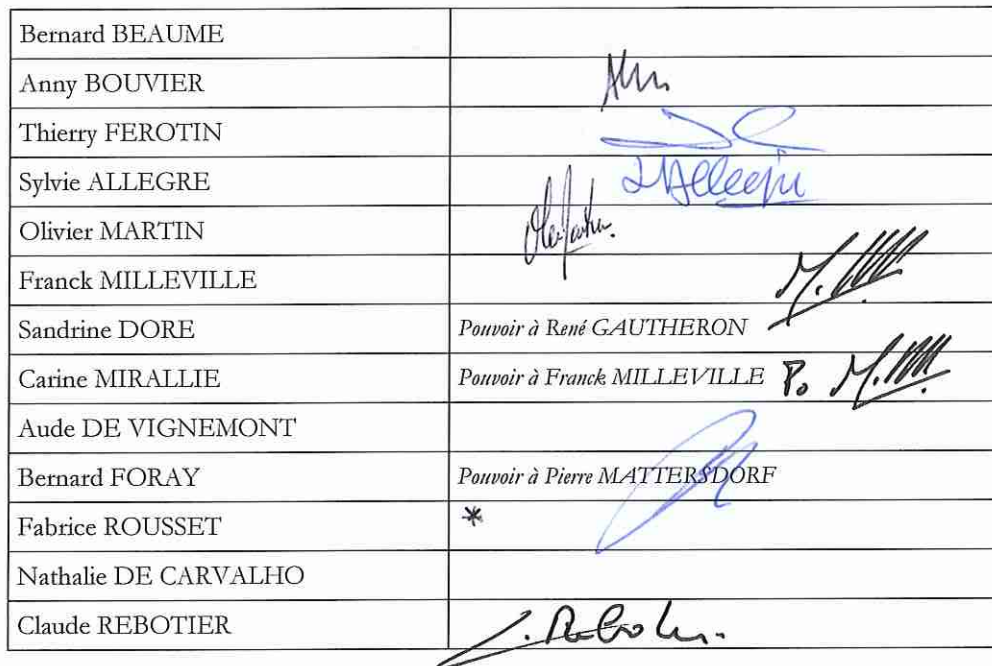 Bernard BEAUME
Anny BOUVIER
Thierry FEROTIN
Sylvie ALLEGRE
Olivier MARTIN
Franck MILLEVILLE
Sandrine DORE Pouvoir à René GAUTHERON
Carine MIRALLIE Pouvoir à Franck MILLEVILLE Po
Aude DE VIGNEMONT
Bernard FORAY Pouvoir à Pierre MATTERSDORF
Fabrice ROUSSET *
Nathalie DE CARVALHO
Claude REBOTIER